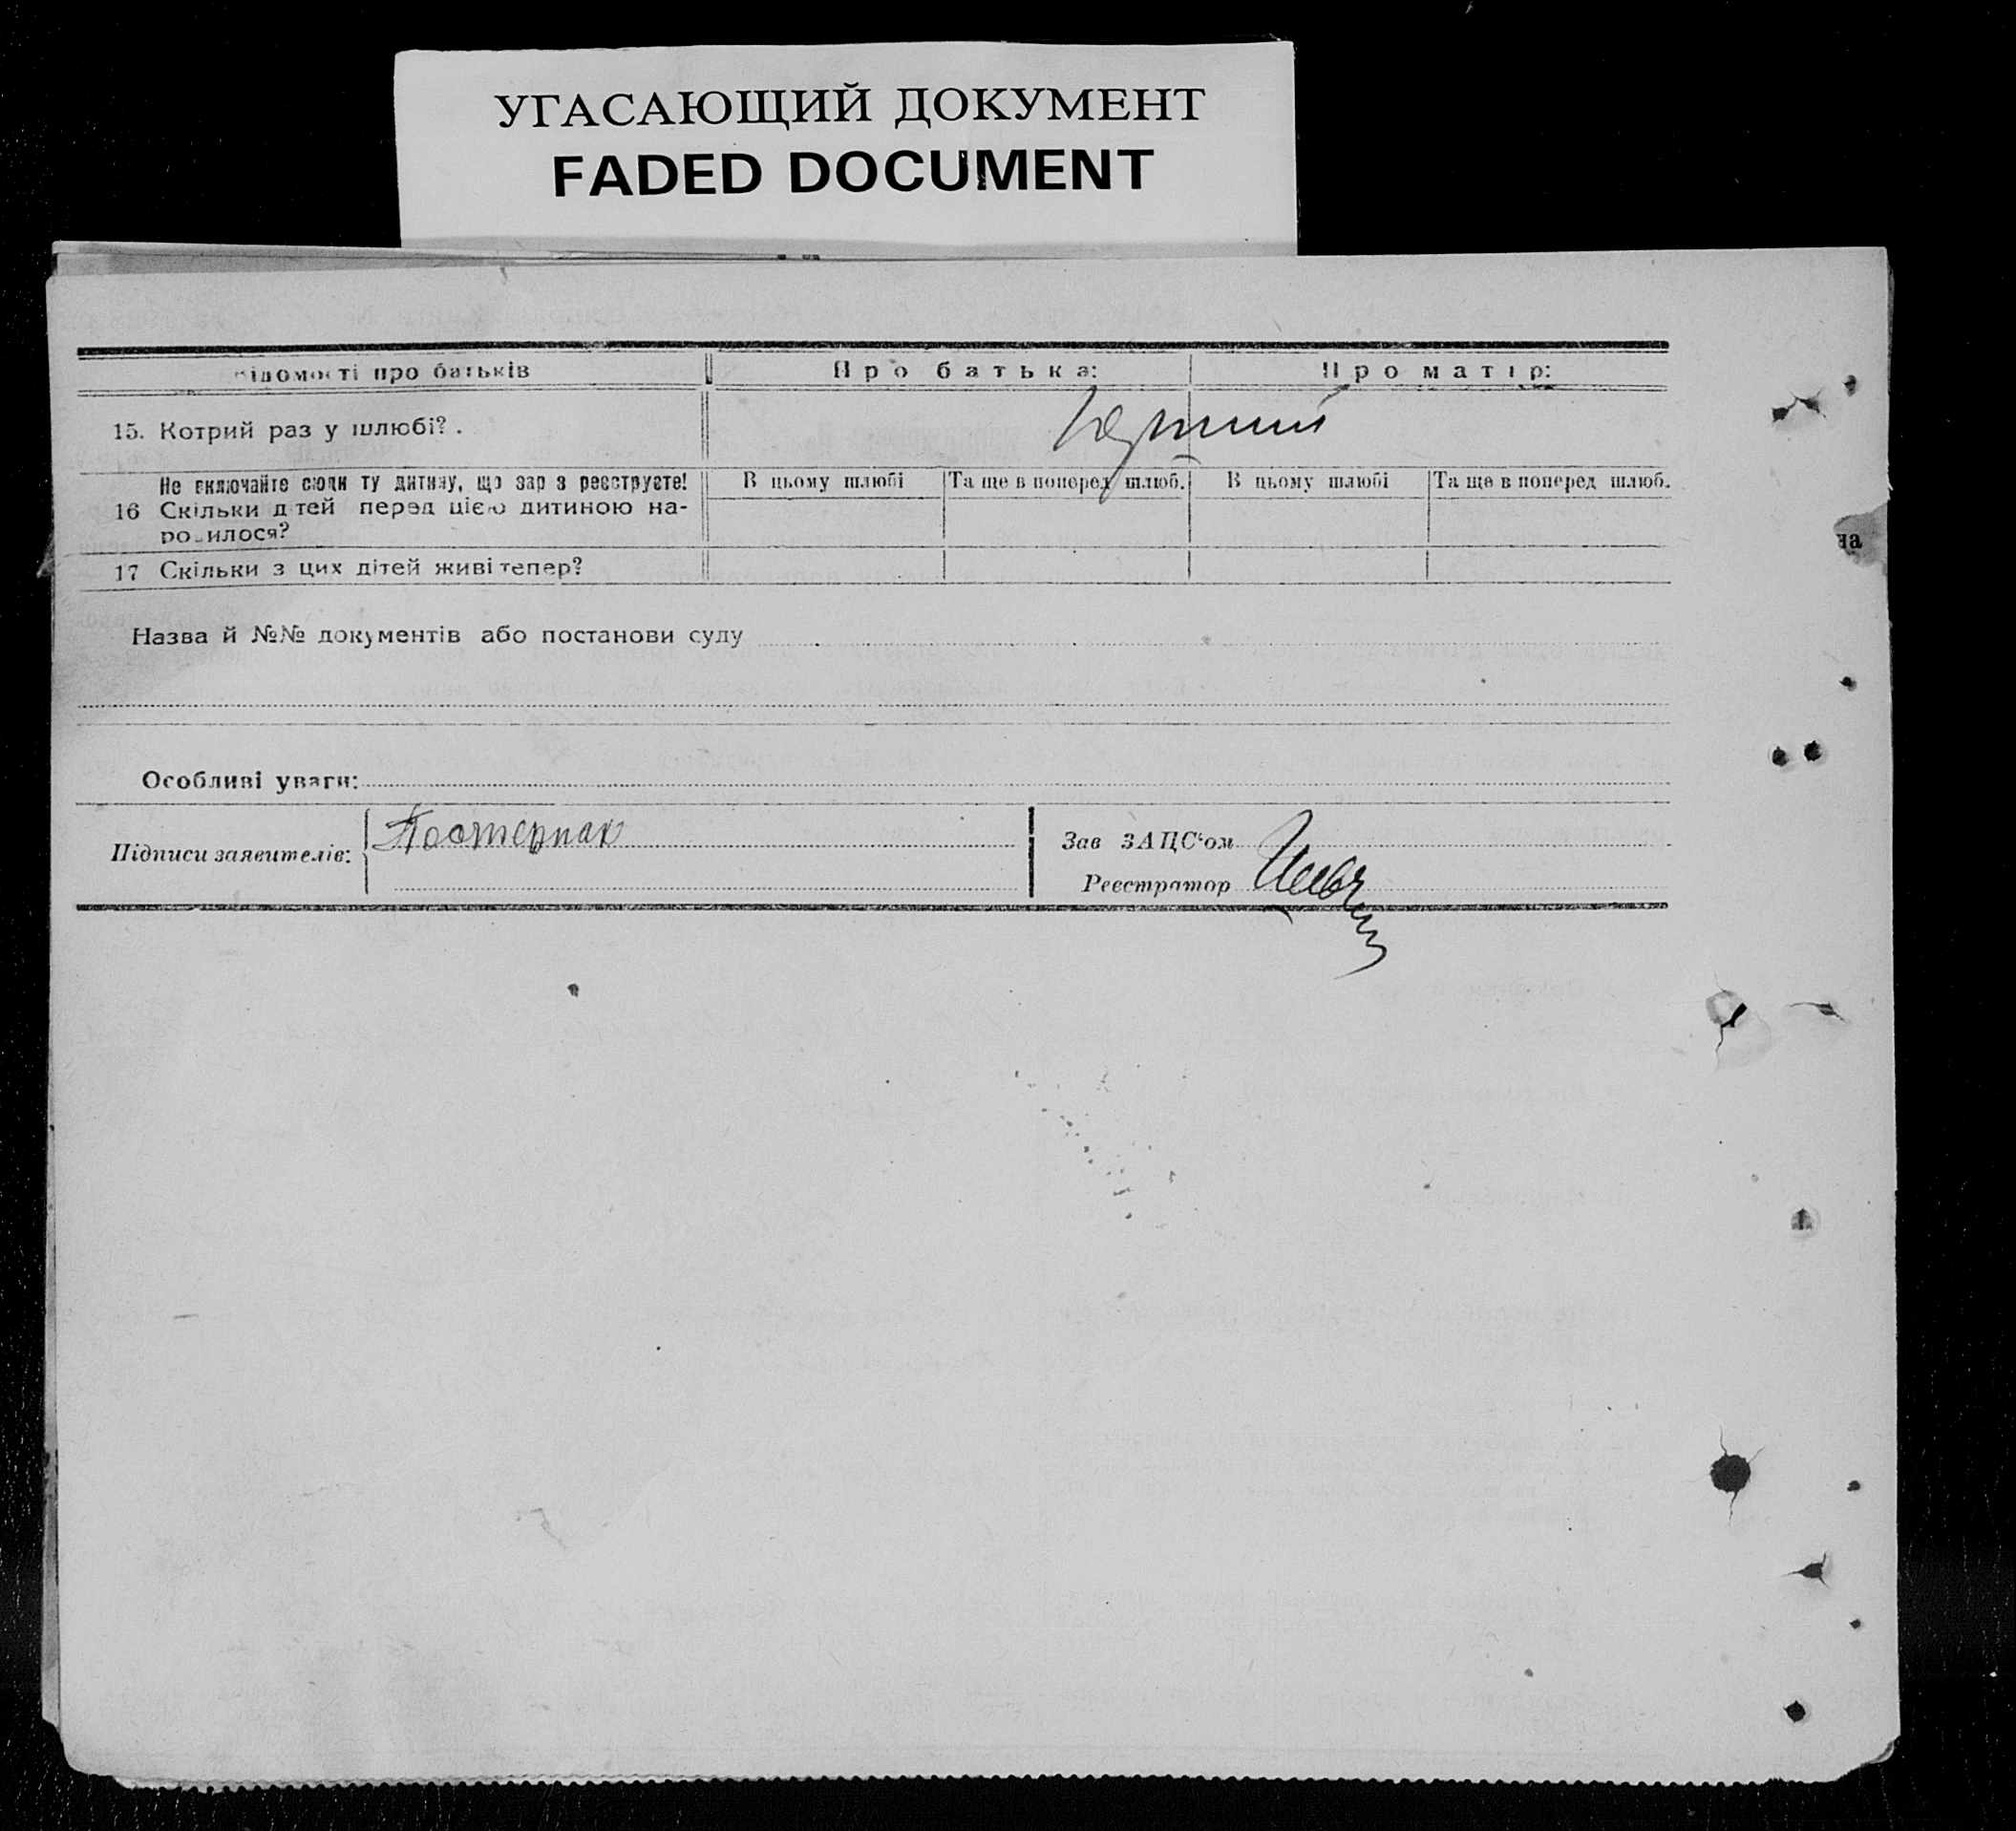 УГАСАЮЩИЙ ДОКУМЕНТ
FADED DOCUMENT
ідомості про батьків
Про батька:
Про матір:
15. Котрий раз у шлюбі? .
Не включайте сюди ту дитину, що зар з реєструєте!
16 Скільки д тей перед цією дитиною на-
ро илося?
В цьому шлюбі
Та ще в поперед шлюб.
В цьому шлюбі
Та ще в поперед шлюб.
17 Скільки з цих дітей живі тепер?
на
Назва й №№ документів або постанови суду
Особливі уваги:
Підписи заявителів:
Постернак
Зав ЗАЦС'ом
Реєстратор